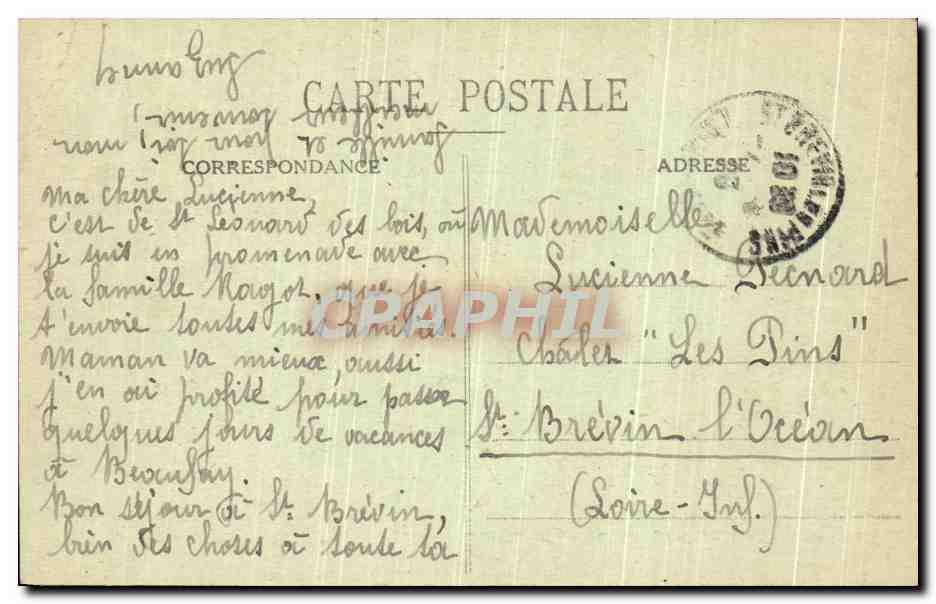 CARTE POSTALE
CORRESPONDANCE
ADRESSE
Ma chère Lucienne,
c'est de St Léonard des bois, où
je suis en promenade avec
la famille Ragot, que je
t'envoie toutes mes amitiés.
Maman va mieux, aussi
j'en ai profité pour passer
quelques jours de vacances
à Beaufay.
Bon séjour à St. Brévin,
bien des choses à toute ta
famille et pour toi, mon
Mademoiselle
Lucienne Pecnard
Châlet "Les Pins"
St. Brévin l'Océan
(Loire-Inf.)
ST BREVIN LES PINS
CPAPHIL